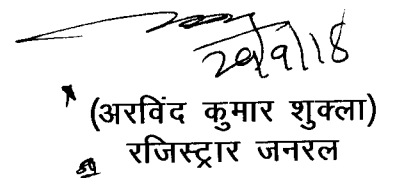 29/9/18
(अरविंद कुमार शुक्ला)
रजिस्ट्रार जनरल